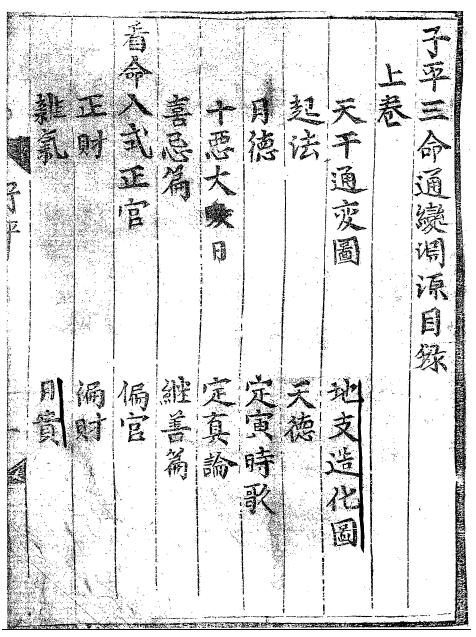 子平三命通變淵源目録
上卷
天干通変圖 地支造化圖
起法 天德
月德 定寅時歌
十惡大敗日 定真論
喜忌篇 継善篇
看命入式正官 偏官
正財 偏財
雜氣